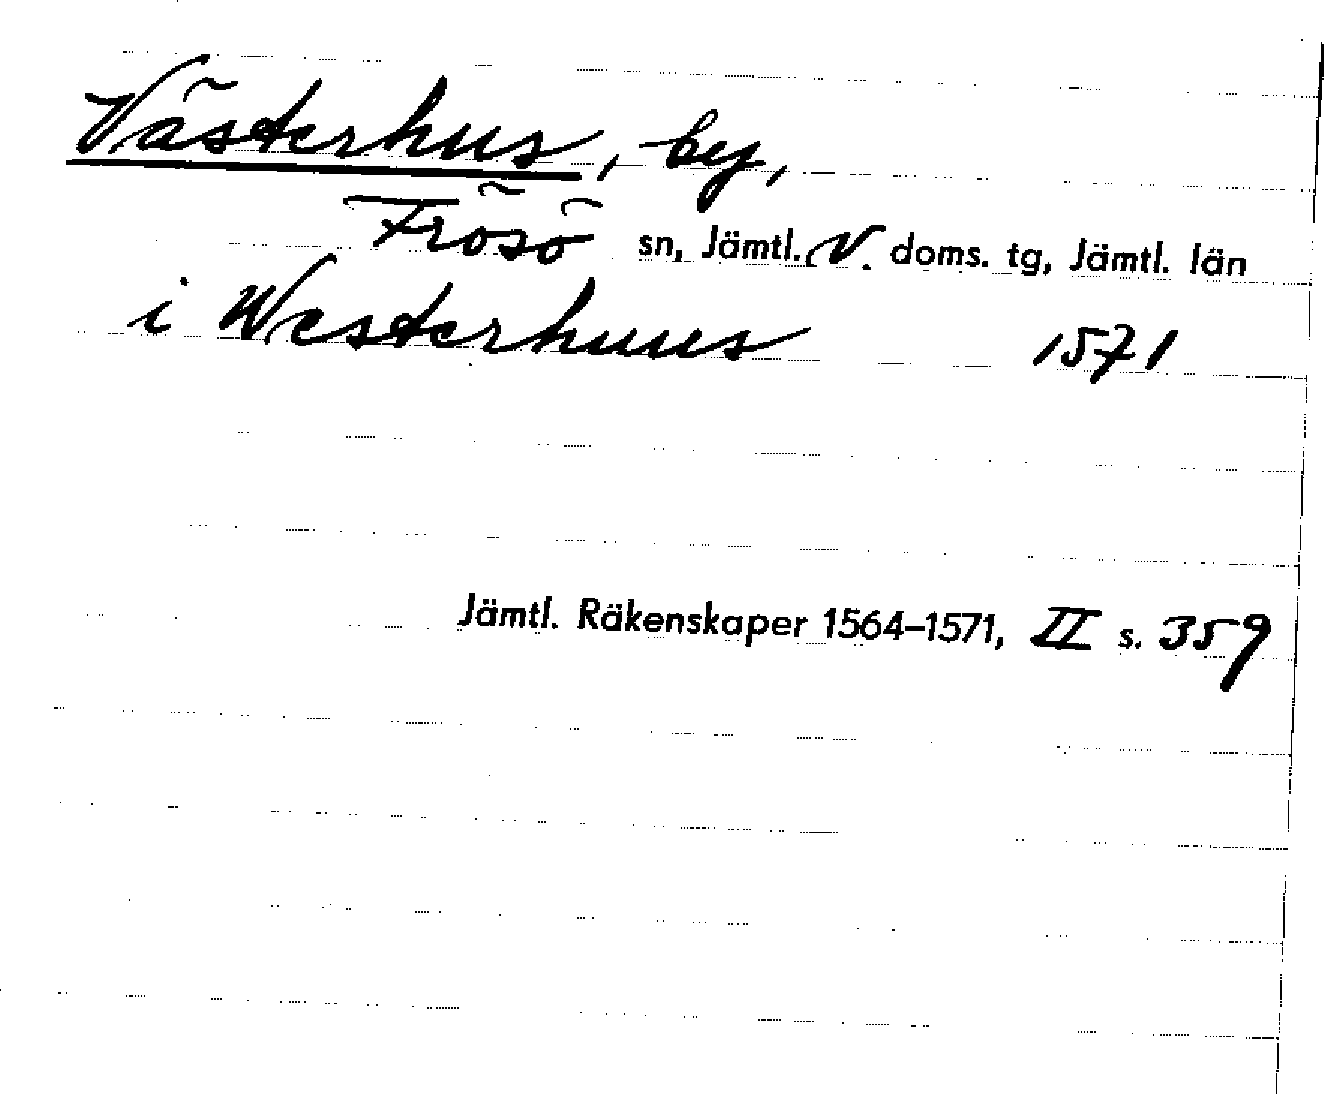 Västerhus, by,
Frösö sn, Jämtl. V. doms. tg, Jämtl. län
i Westerhuus 1571
Jämtl. Räkenskaper 1564–1571, II s. 359